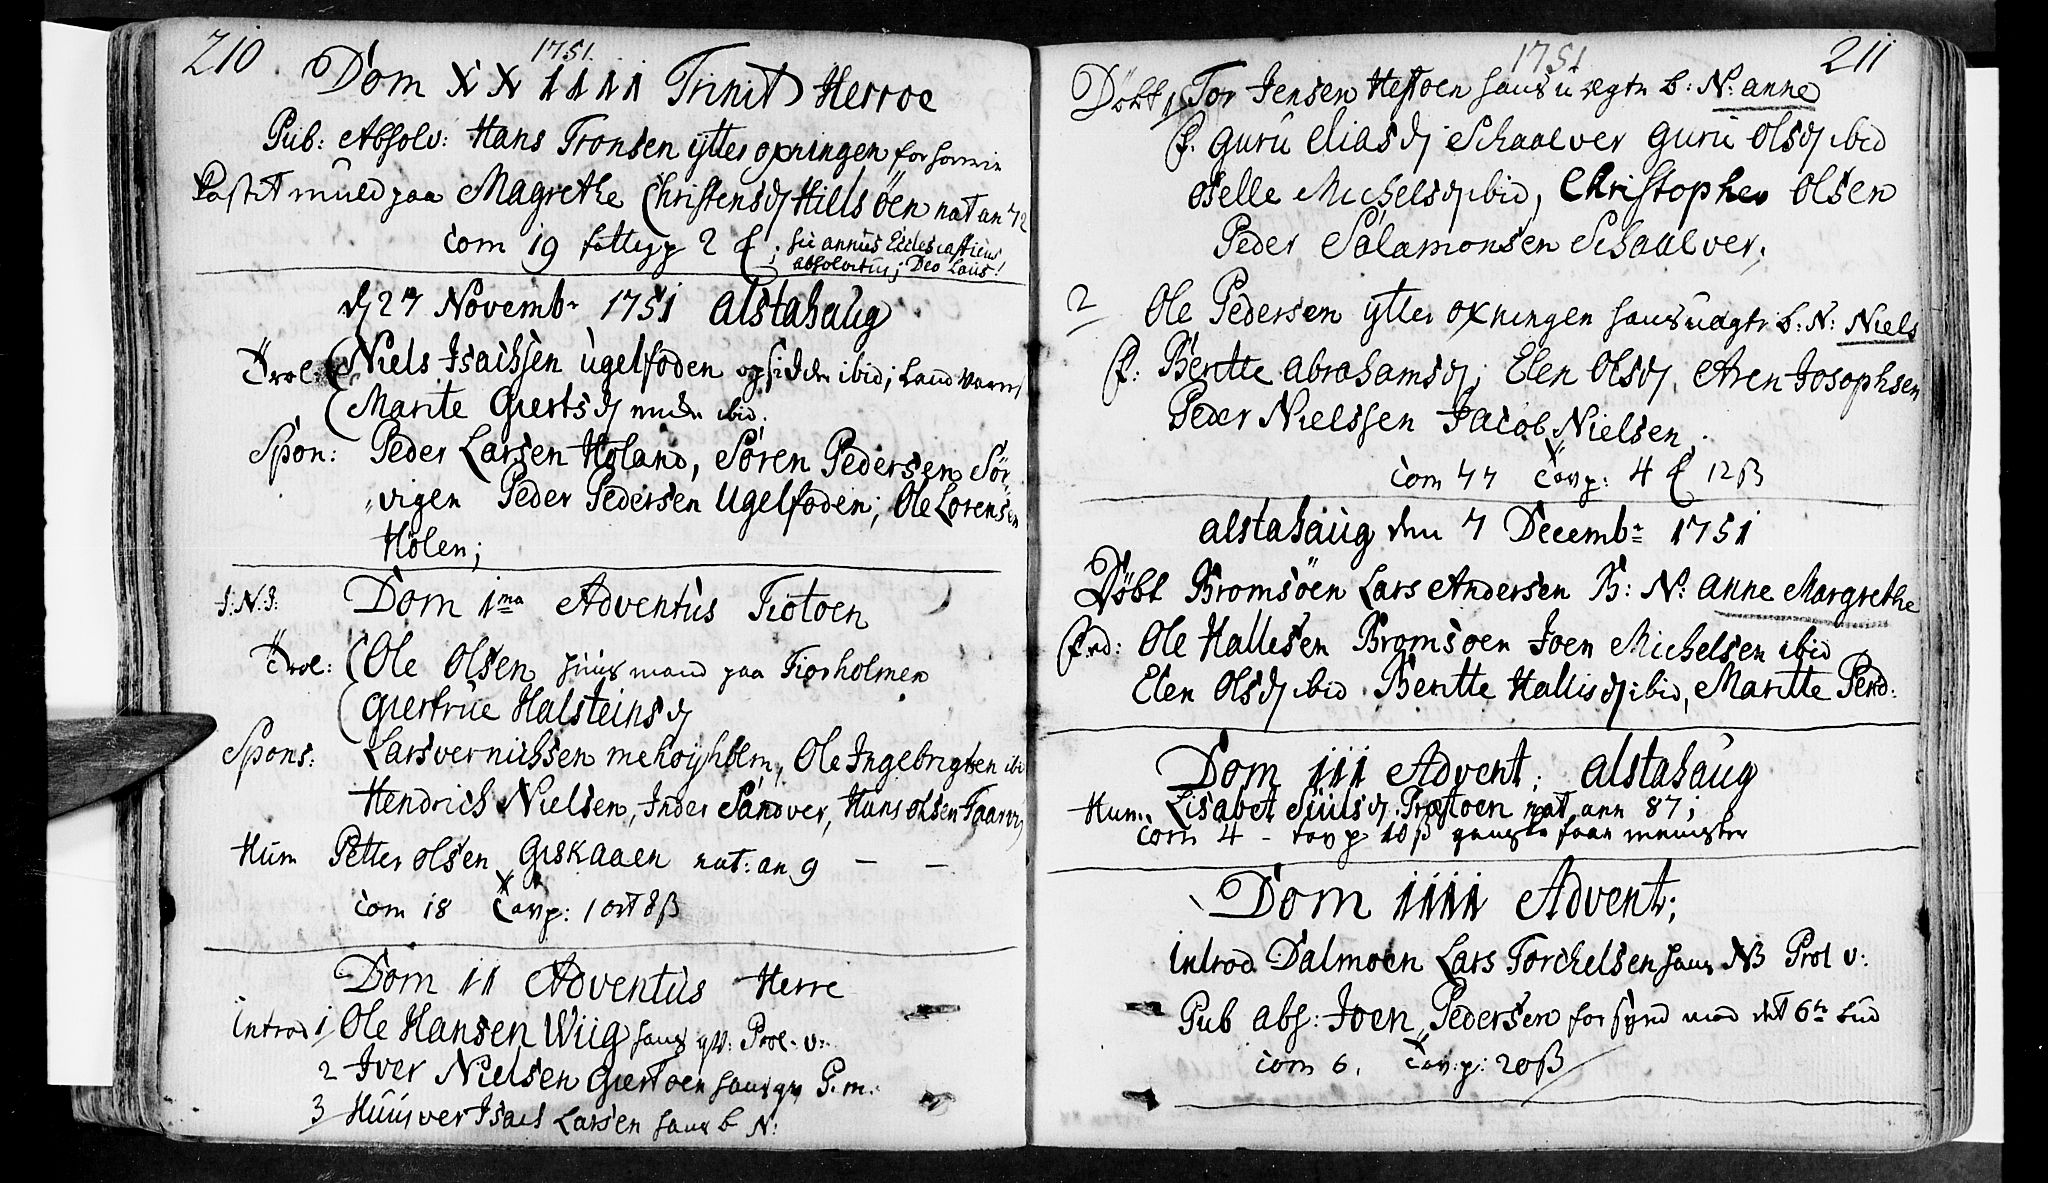 210
1751.
Dom XXIIII Trinit Herroe
Pub: Absolv: Hans Tronsen ytter oxningen for
Kastet muld paa Magrethe Christensdj Hillsöen nat an 72
com 19 fattigp 2 ; hic annus Ecclesiasticus
absolvitur; Deo Laus!
dj 27 Novembr 1751 alstahaug
Trol Niels Isachsen ugelfoden opsidder ibid; Land
Marite Giertsdj ibid;
Spon: Peder Larsen Holand, Sören Pedersen Sör-
vigen Peder Pedersen Ugelfoden; Ole Lorensen
Holen;
J:N:J: Dom 1ma Adventus Tiotoen
Trol: Ole Olsen huusmand paa Tiorholmen
Giertrue Halsteinsdj
Spons: Lars mehoyholm, Ole Ingebrigtsen ibi
Hendrich Nielsen, Inder Sandver, Hans olsen
Hum Petter olsen Giskaaen nat: an 9 — —
com 18 Tavp: 1 ort 8 ß
Dom II Adventus Herre
Introd 1 Ole Hansen Wiig hans qv: Prol. v:
2 Iver Nielsen Giertoen hans qv P.m.:
3 Huusver Isach Larsen hans b N:
211
1751
Döbt 1 Tor Jensen Hestoen hans u ægte b: N: anne
f. Guru Eliasdj Schaalver Guru Olsdj ibid
Oselle Michelsdj ibid, Christopher Olsen
Peder Salamonsen Schaalver;
2 Ole Pedersen ytter oxningen hans uægte b: N: Niels
f: Beritte abrahamsdj; Elen Olsdj. Aren Josophsen
Peder Nielssen Jacob Nielsen;
com 44 Tavp: 4 12 ß
alstahaug den 7 Decembr 1751
Döbt Bromsöen Lars Andersen B: N: anne Margrethe
fad: Ole Hallesen Bromsoen Joen Michelsen ibid
Elen Olsdj ibid Beritte Hallisdj ibid, Maritte Perd:
Dom III Advent: alstahaug
Hum: Lisabet Siulsdj nat ann 87;
com 4 - tavp 10 ß ganske faae mennister
Dom IIII Advent;
Introd Dalmoen Lars Torchelsen hans NB Prol v:
Pub abs: Joen Pedersen for synd mod det 6te bud
com 6. Tav:p: 20 ß